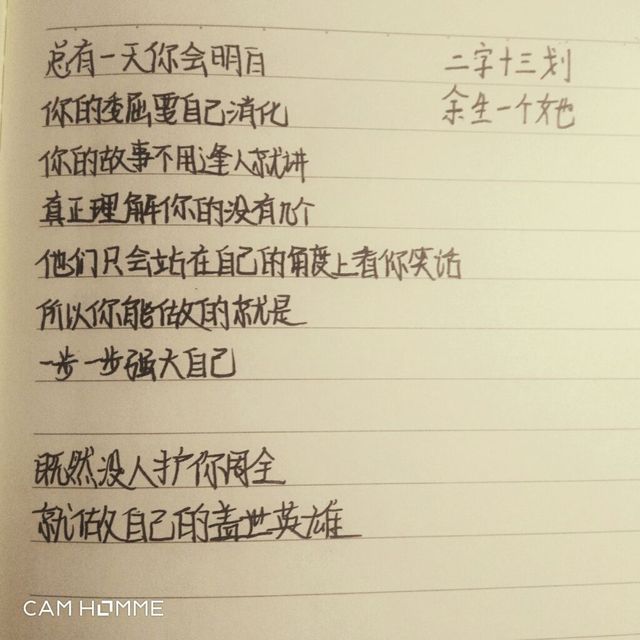 总有一天你会明白
你的委屈要自己消化
你的故事不用逢人就讲
真正理解你的没有几个
他们只会站在自己的角度上看你笑话
所以你能做的就是
一步一步强大自己
既然没人护你周全
就做自己的盖世英雄
二字十三划
余生一个她
CAM HOMME